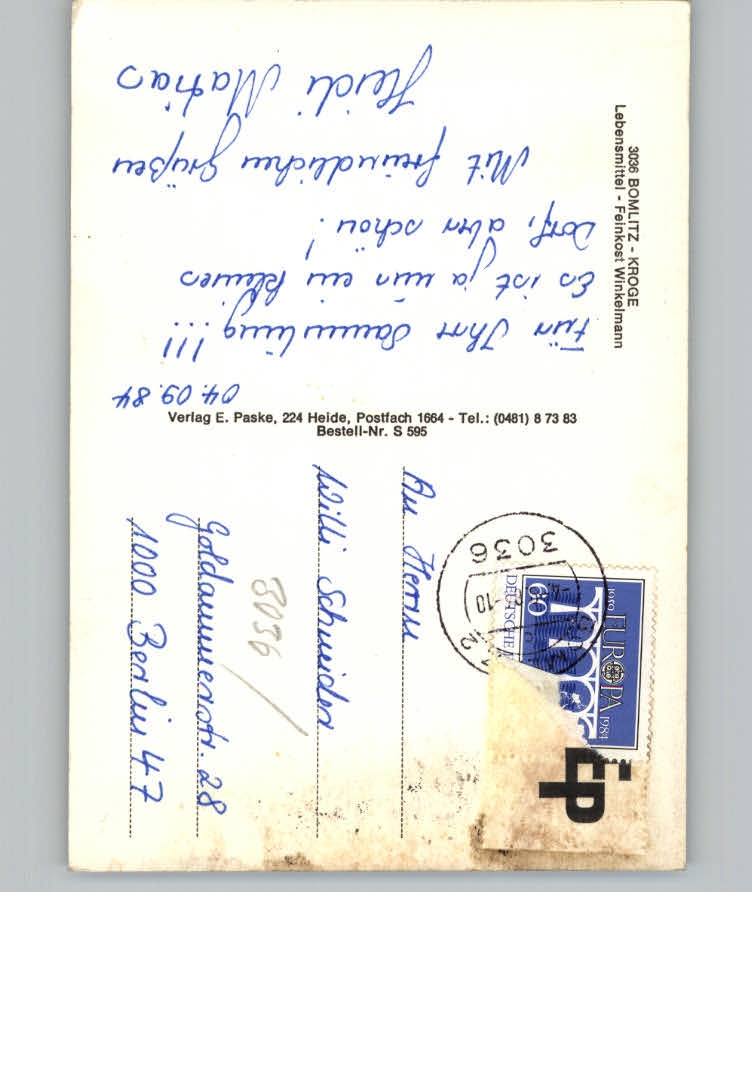 3036 BOMLITZ - KROGE
Lebensmittel - Feinkost Winkelmann
04.09.84
Für Ihre Sammlung!!!
Es ist ja nur ein kleines
Dorf, aber schön!
Mit freundlichen Grüßen
Heidi Matias
Verlag E. Paske, 224 Heide, Postfach 1664 - Tel.: (0481) 8 73 83
Bestell-Nr. S 595
An Herrn
Willi Schneider
3036
Goldammerstr. 28
1000 Berlin 47
3036
1959 EUROPA 1984
60
DEUTSCHE
EP